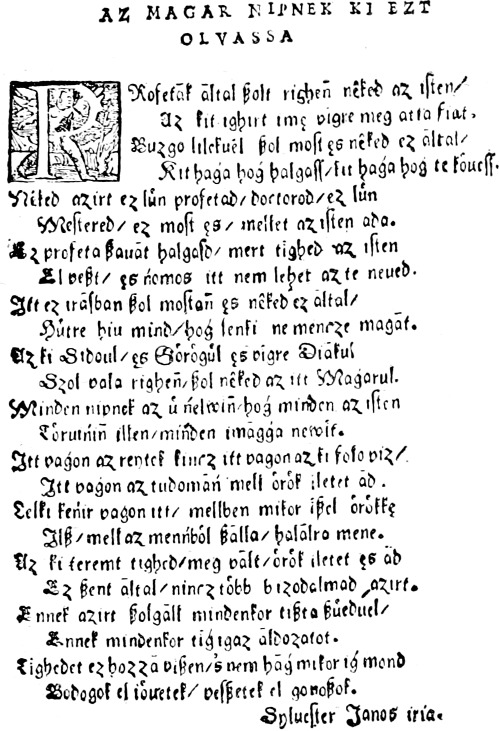 AZ MAGAR NIPNEK KI EZT
OLVASSA
PRofetāk āltal ßolt righeñ nêked az iſten/
Az kit ighirt ime vigre meg atta fiat.
Buzgo lilekuel ßol moſt ęs nêked ez āltal/
Kit haǵa hoǵ halgaſſ/kit haǵa hoǵ te kǒueſſ.
Nêked azirt ez lůn profetad/doctorod/ez lůn
Meſtered/ez moſt ęs/mellet az iſten ada.
Ez profeta ßauāt halgaſd/mert tighed az iſten
El veßt/ęs ńomos itt nem lehet az te neued.
Itt ez irāſban ßol moſtañ ęs nêked ez āltal/
Hůtre hiu mind/hoǵ ſenki ne mencze magāt.
Az ki Sidoul/ęs Gǒrǒgůl ęs vigre Diākul
Szol vala righeñ/ßol nêked az itt Maǵarul.
Minden nipnek az ů ńelwiñ/hoǵ minden az iſten
Tǒruińiñ illen/miñden imāǵǵa newit.
Itt vaǵon az reytek kincz itt vagon az ki foľo viz/
Itt vaǵon az tudomāń melľ ǒrǒk iletet ād.
Lelki keńir vagon itt/melľben mikor ißel ǒrǒkkę
Ilß/melľ az meńńbǒl ßālla/halālra mene.
Az ki teremt tighed/meg vālt/ǒrǒk iletet ęs ād
Ez ßent āltal/nincz tǒbb bizodalmad azirt.
Ennek azirt ßolgālľ mindenkor tißta ßůeduel/
Ennek mindenkor tiǵ igaz āldozatot.
Tighedet ez hozzā vißen/'s nem hāǵ mikor iǵ mond
Bodogok el iǒuetek/veſßetek el goņoßok.
Sylueſter Janos iria.